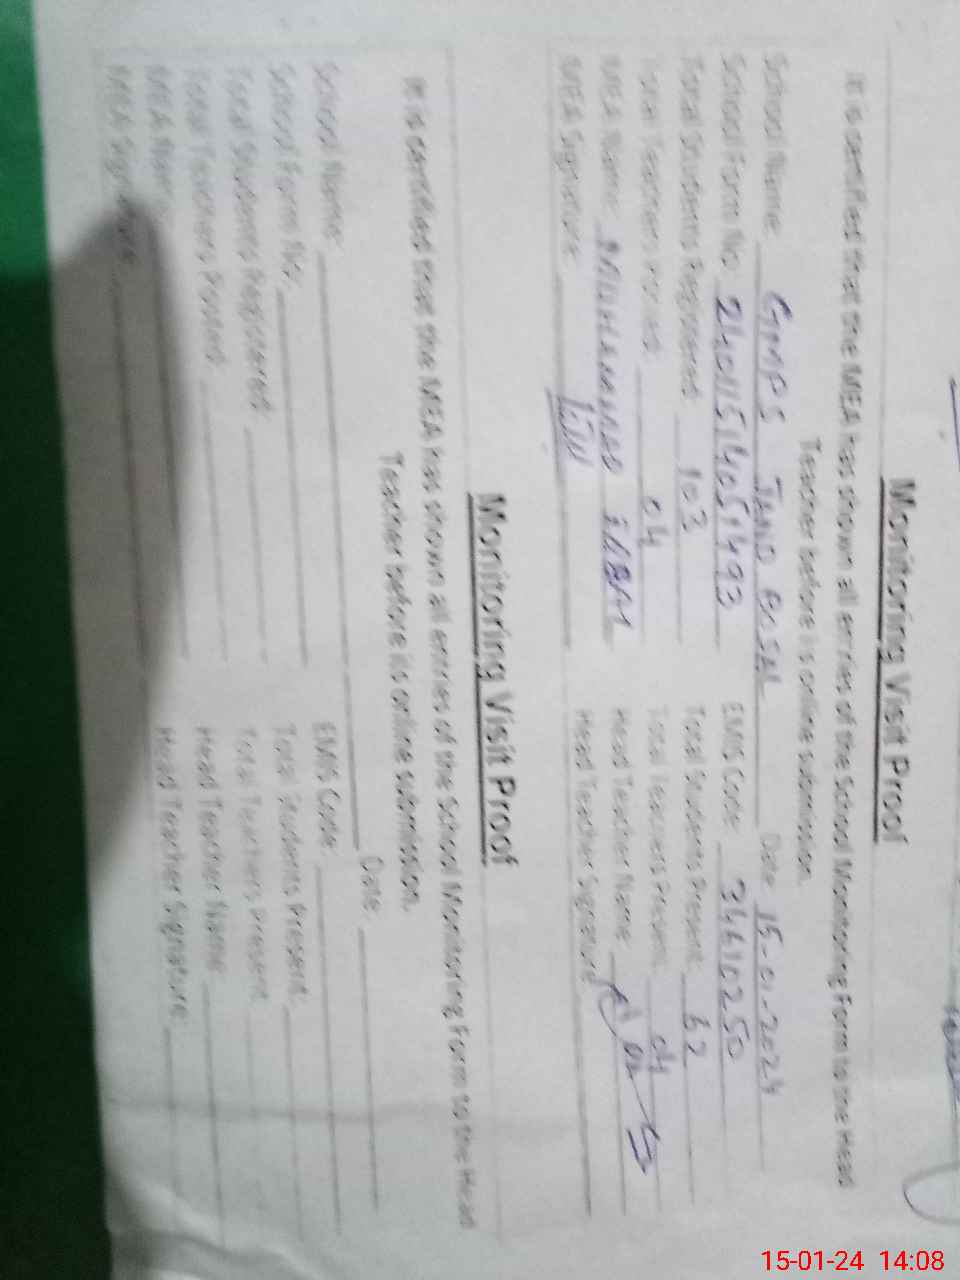 Monitoring Visit Proof
It is certified that the MEA has shown all entries of the School Monitoring Form to the Head
Teacher before its online submission.
School Name: GMPS JAND BOSAL Date 15-01-2024
School Form No: EMIS Code: 34610250
Total Students Registered: 103 Total Students Present: 62
Total Teachers Posted: 04 Total Teachers Present: 04
MEA Name: MUHAMMAD Head Teacher Name:
MEA Signature: Head Teacher Signature:
Monitoring Visit Proof
It is certified that the MEA has shown all entries of the School Monitoring Form to the Head
Teacher before its online submission.
School Name: Date:
School Form No: EMIS Code:
Total Students Registered: Total Students Present:
Total Teachers Posted: Total Teachers Present:
MEA Name: Head Teacher Name:
MEA Signature: Head Teacher Signature:
15-01-24 14:08